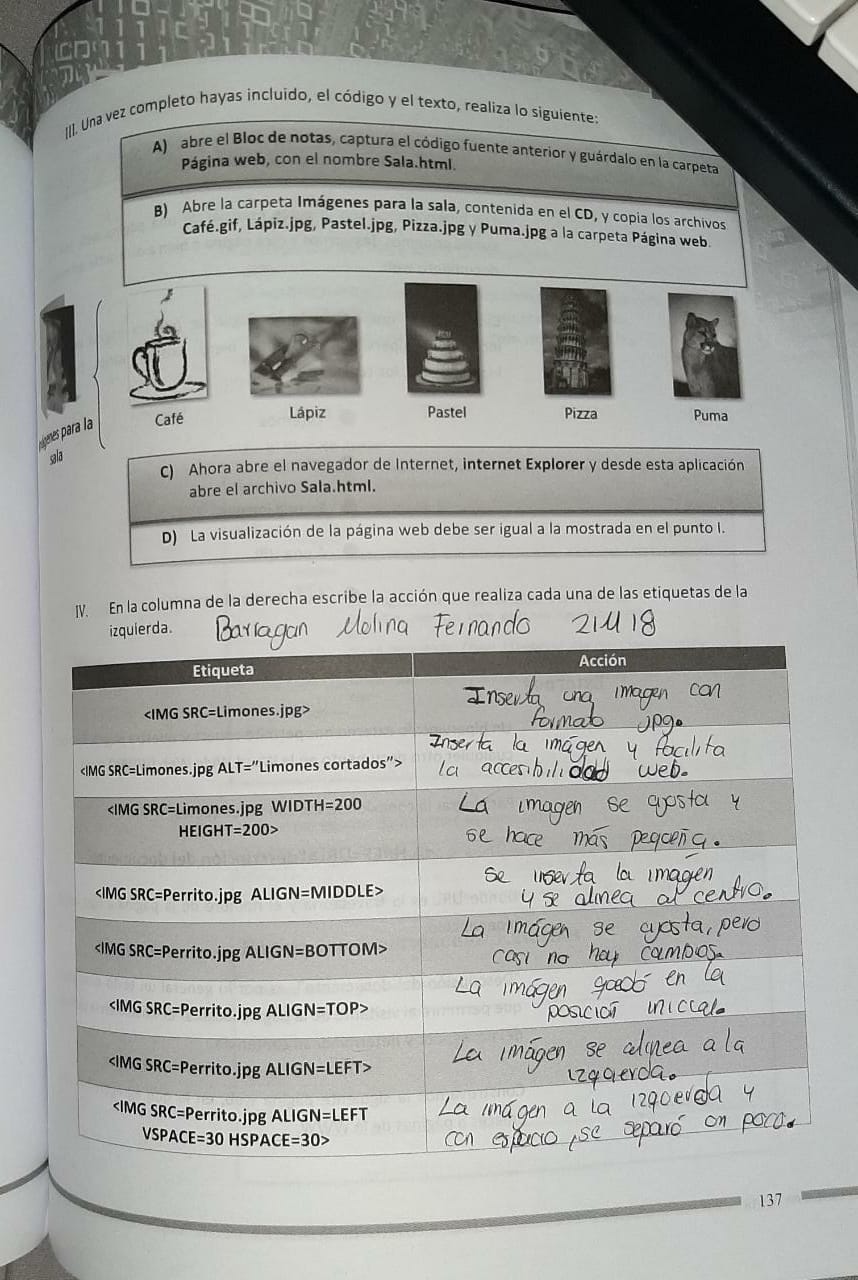 III. Una vez completo hayas incluido, el código y el texto, realiza lo siguiente:
A) abre el Bloc de notas, captura el código fuente anterior y guárdalo en la carpeta
Página web, con el nombre Sala.html.
B) Abre la carpeta Imágenes para la sala, contenida en el CD, y copia los archivos
Café.gif, Lápiz.jpg, Pastel.jpg, Pizza.jpg y Puma.jpg a la carpeta Página web.
Café
Lápiz
Pastel
Pizza
Puma
para la
sala
C) Ahora abre el navegador de Internet, internet Explorer y desde esta aplicación
abre el archivo Sala.html.
D) La visualización de la página web debe ser igual a la mostrada en el punto I.
IV. En la columna de la derecha escribe la acción que realiza cada una de las etiquetas de la
izquierda. Barragan Molina Fernando 21418
Etiqueta Acción
<IMG SRC=Limones.jpg> Inserta una imagen con
formato jpg.
<IMG SRC=Limones.jpg ALT="Limones cortados"> Inserta la imágen y facilita
la accesibilidad web.
<IMG SRC=Limones.jpg WIDTH=200
HEIGHT=200> La imagen se ajosta y
se hace más peqceña.
<IMG SRC=Perrito.jpg ALIGN=MIDDLE> se inserta la imagen
y se alinea al centro.
<IMG SRC=Perrito.jpg ALIGN=BOTTOM> La imágen se ajosta, pero
casi no hay cambios.
<IMG SRC=Perrito.jpg ALIGN=TOP> La imágen quedó en la
posición inicial.
<IMG SRC=Perrito.jpg ALIGN=LEFT> La imágen se alinea a la
izquierda.
<IMG SRC=Perrito.jpg ALIGN=LEFT
VSPACE=30 HSPACE=30> La imágen a la izquierda y
con espacio, se separó on poco.
137